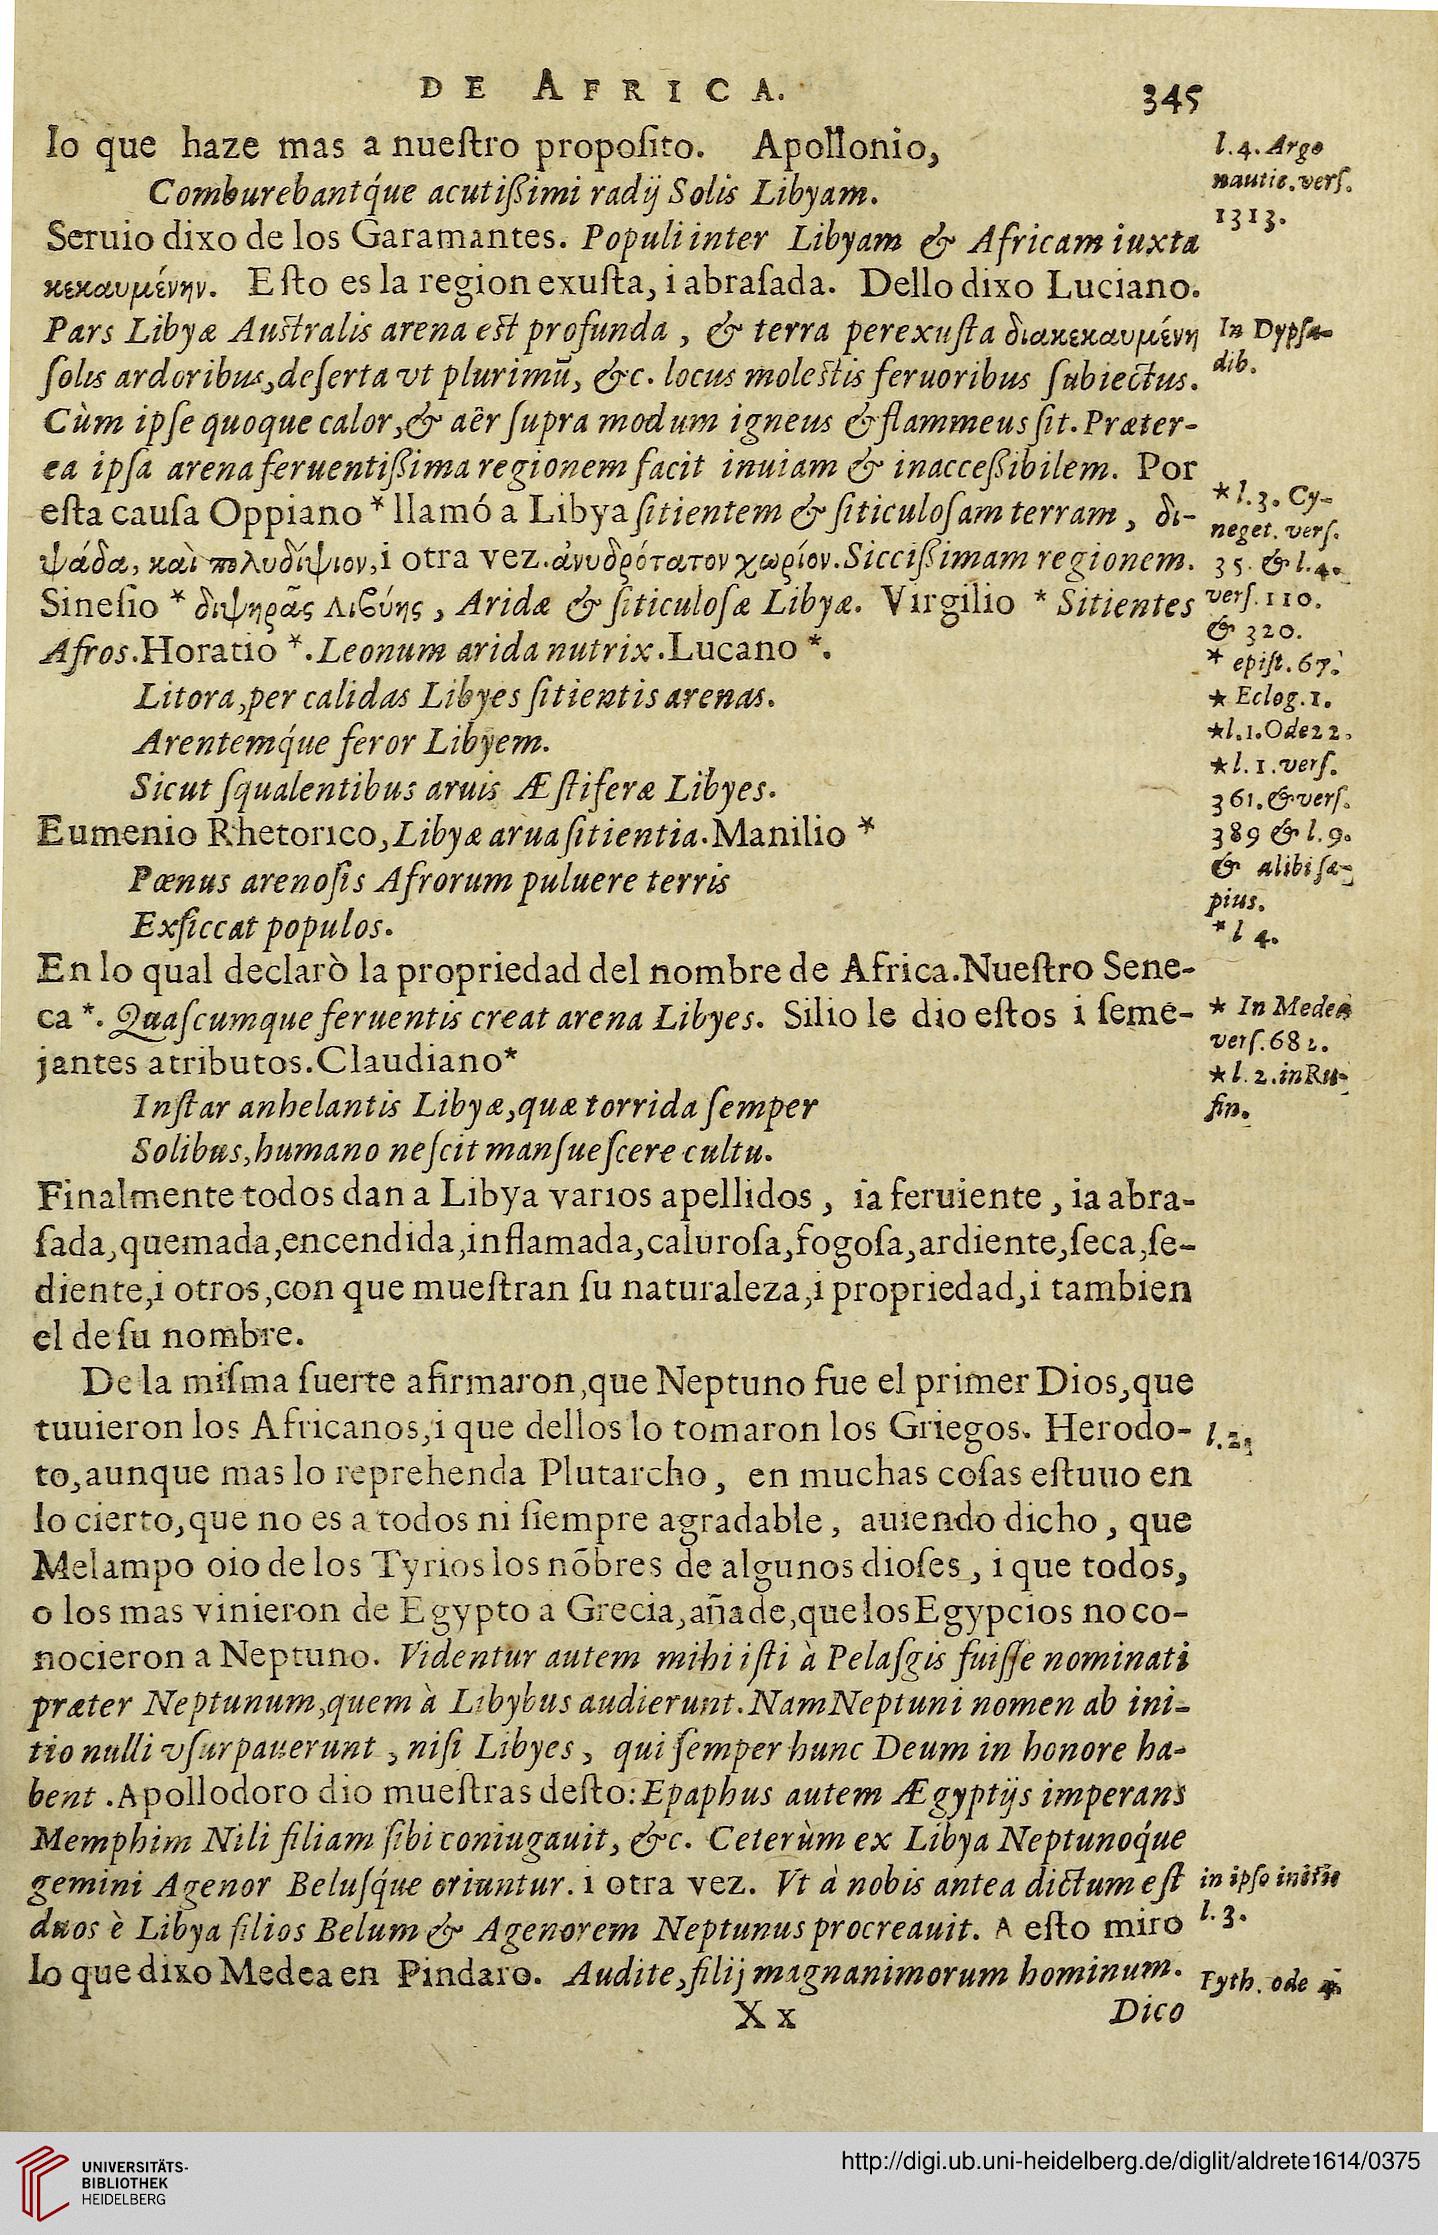 DE AFRICA. 345
lo que haze mas a nueſtro propoſito. Apollonio,
Comburebantq́ue acutißimi radij Solis Libyam.
Seruio dixo de los Garamantes. Populi inter Libyam & Africam iuxta
κεκαυμένην. Eſto es la region exuſta, i abraſada. Dello dixo Luciano.
Pars Libyæ Auſtralis arena eſt profunda, & terra perexuſta διακεκαυμένη
ſolis ardoribus, deſerta vt plurimū, &c. locus moleſtis feruoribus ſubiectus.
Cùm ipſe quoque calor, & aër ſupra modum igneus & flammeus ſit. Præter-
ea ipſa arena feruentißima regionem facit inuiam & inacceßibilem. Por
eſta cauſa Oppiano * llamó a Libya ſitientem & ſiticuloſam terram, δι-
ψάδα, καὶ πολυδίψιον, i otra vez. ἀνυδρότατον χωρίον. Siccißimam regionem.
Sineſio * διψηρᾶς Λιϐύης, Aridæ & ſiticuloſæ Libyæ. Virgilio * Sitientes
Afros. Horatio *. Leonum arida nutrix. Lucano *.
Litora, per calidas Libyes ſitientis arenas.
Arentemq́ue feror Libyem.
Sicut ſqualentibus aruis Æſtiferæ Libyes.
Eumenio Rhetorico, Libyæ arua ſitientia. Manilio *
Pœnus arenoſis Afrorum puluere terris
Exſiccat populos.
En lo qual declarò la propriedad del nombre de Africa. Nueſtro Sene-
ca *. Quaſcumque feruentis creat arena Libyes. Silio le dio eſtos i ſeme-
jantes atributos. Claudiano *
Inſtar anhelantis Libyæ, quæ torrida ſemper
Solibus, humano neſcit manſueſcere cultu.
Finalmente todos dan a Libya varios apellidos, ia feruiente, ia abra-
ſada, quemada, encendida, inflamada, caluroſa, fogoſa, ardiente, ſeca, ſe-
diente, i otros, con que mueſtran ſu naturaleza, i propriedad, i tambien
el de ſu nombre.
De la miſma ſuerte afirmaron, que Neptuno fue el primer Dios, que
tuuieron los Africanos, i que dellos lo tomaron los Griegos. Herodo-
to, aunque mas lo reprehenda Plutarcho, en muchas coſas eſtuuo en
lo cierto, que no es a todos ni ſiempre agradable, auiendo dicho, que
Melampo oio de los Tyrios los nōbres de algunos dioſes, i que todos,
o los mas vinieron de Egypto a Grecia, añade, que los Egypcios no co-
nocieron a Neptuno. Videntur autem mihi iſti à Pelaſgis fuiſſe nominati
præter Neptunum, quem à Libybus audierunt. Nam Neptuni nomen ab ini-
tio nulli vſurpauerunt, niſi Libyes, qui ſemper hunc Deum in honore ha-
bent. Apollodoro dio mueſtras deſto: Epaphus autem Ægyptijs imperans
Memphim Nili filiam ſibi coniugauit, &c. Ceterùm ex Libya Neptunoq́ue
gemini Agenor Beluſq́ue oriuntur. i otra vez. Vt à nobis antea dictum eſt
duos è Libya filios Belum & Agenorem Neptunus procreauit. A eſto miro
lo que dixo Medea en Pindaro. Audite, filij magnanimorum hominum.
Xx Dico
l. 4. Argo
nautic. verſ.
1313.
In Dypſa-
dib.
* l. 3. Cy-
neget. verſ.
35. & l. 4.
verſ. 110.
& 320.
* epiſt. 67.
* Eclog. 1.
* l. 1. Ode 22.
* l. 1. verſ.
361. & verſ.
389 & l. 9.
& alibi ſæ-
pius.
* l 4.
* In Medea
verſ. 682.
* l. 2. in Ru-
fin.
l. 2.
in ipſo initio
l. 3.
Pyth. ode 4.
UNIVERSITÄTS-
BIBLIOTHEK
HEIDELBERG
http://digi.ub.uni-heidelberg.de/diglit/aldrete1614/0375